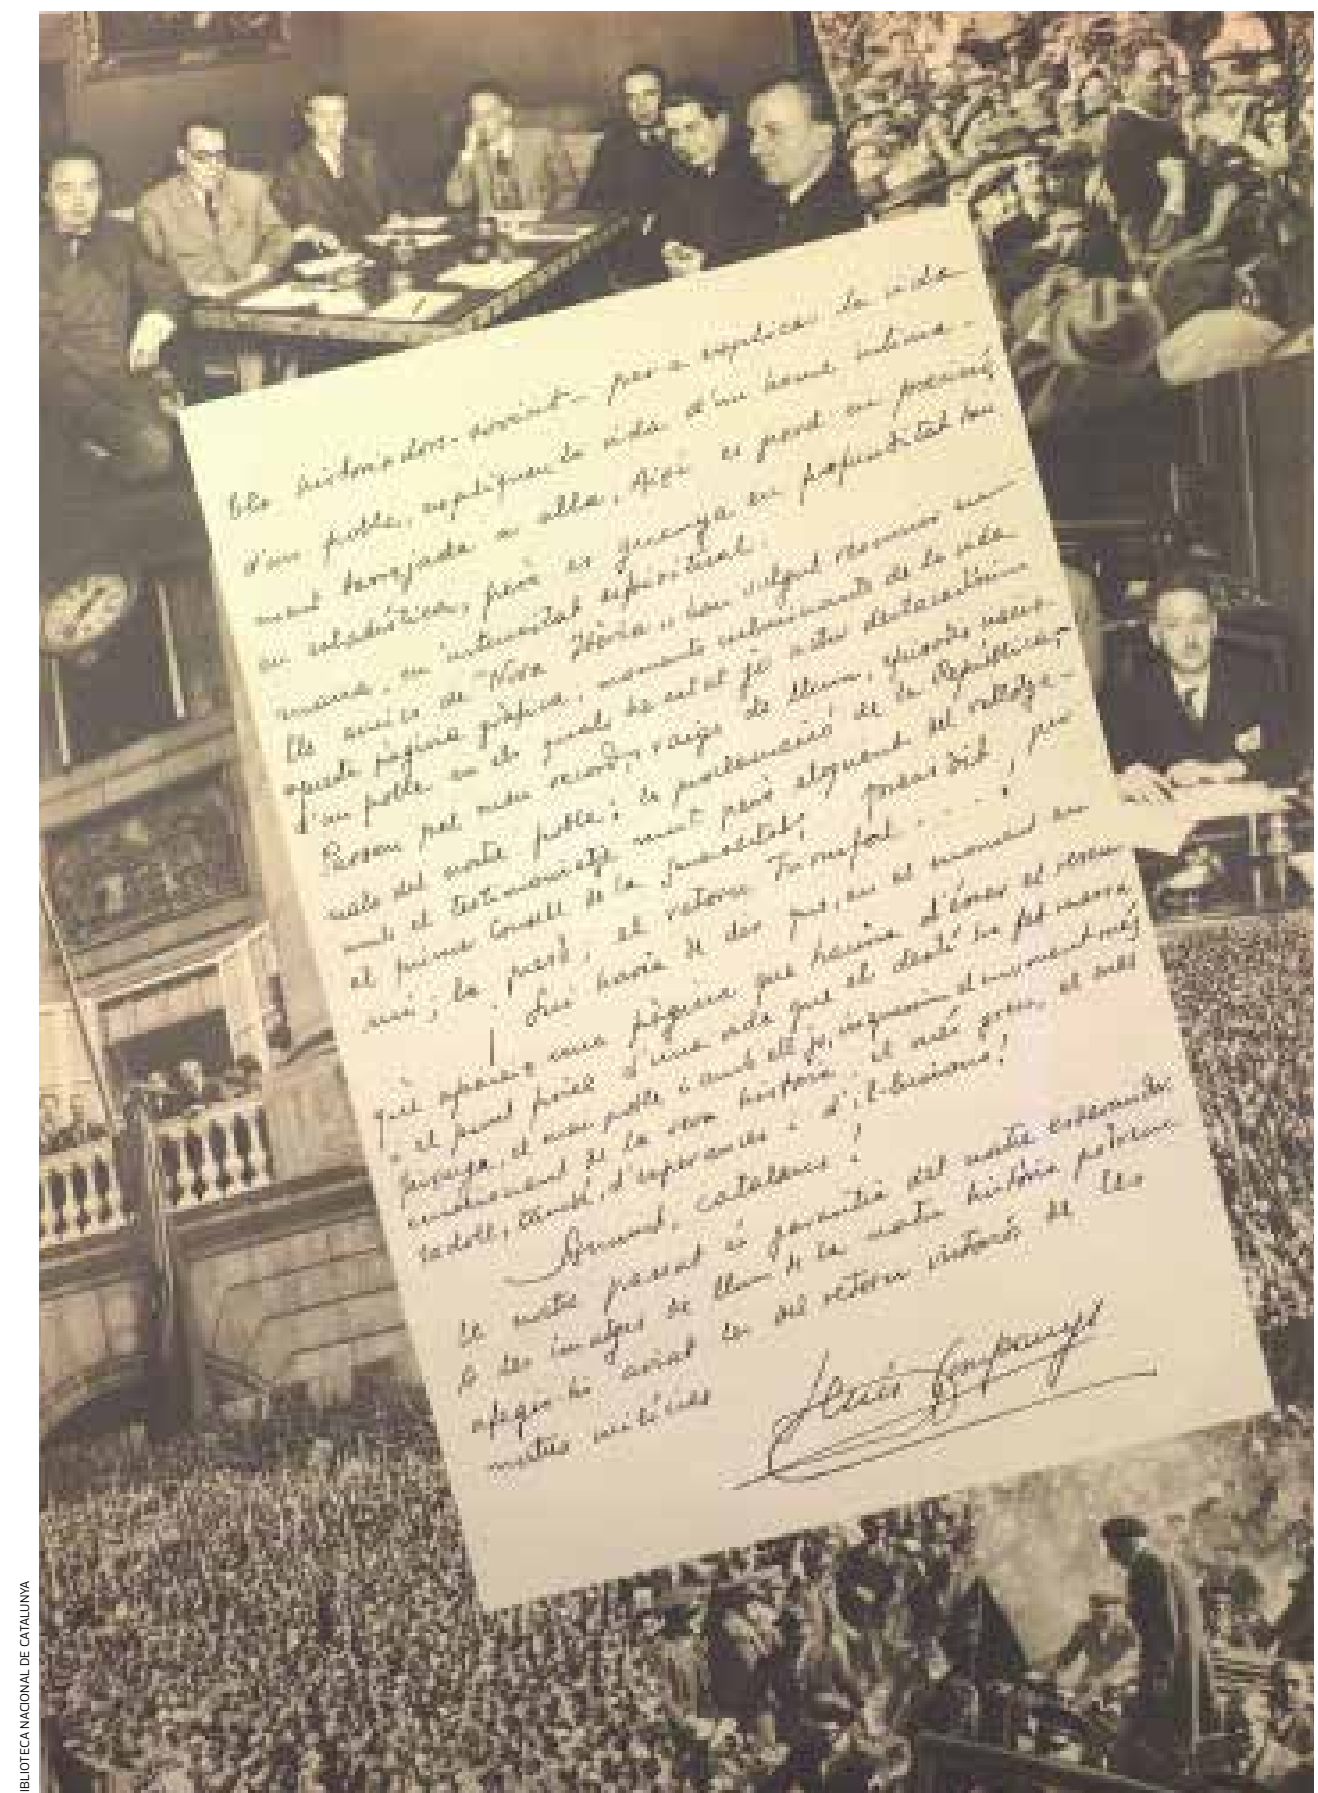 Els historiadors, sovint, per a explicar la vida
d'un poble, expliquen la vida d'un home íntima-
ment barrejada a ella. Així es perd en precisió
en estadística, però es guanya en profunditat hu
mana, en intensitat espiritual.
Els amics de "Nova Ibèria" han volgut resumir en
aquesta pàgina gràfica, moments culminants de la vida
d'un poble en els quals he estat jo actor destacadíssim
Passen pel meu record, raigs de llum, episodis
nals del nostre poble; la proclamació de la República,
amb el testimoniatge mut però eloqüent del rellotge
el primer Consell de la Generalitat, presidit per
mi; la presó, el retorn Triomfal . . . !
! Qui havia de dir que, en el moment en
què apareix una pàgina que hauria d'ésser el resum
i el punt final d'una vida que el destí ha fet
el meu poble i amb ell jo, el moment més
de la seva història, el més greu, el més
també, d'esperances i d'il·lusions!
Amunt, catalans!
El nostre passat és garantia del nostre esdevenidor
A les imatges de llum de la nostra història podrem
afegir-hi aviat les del retorn victoriós de les
nostres milícies
Lluís Companys
IBLIOTECA NACIONAL DE CATALUNYA